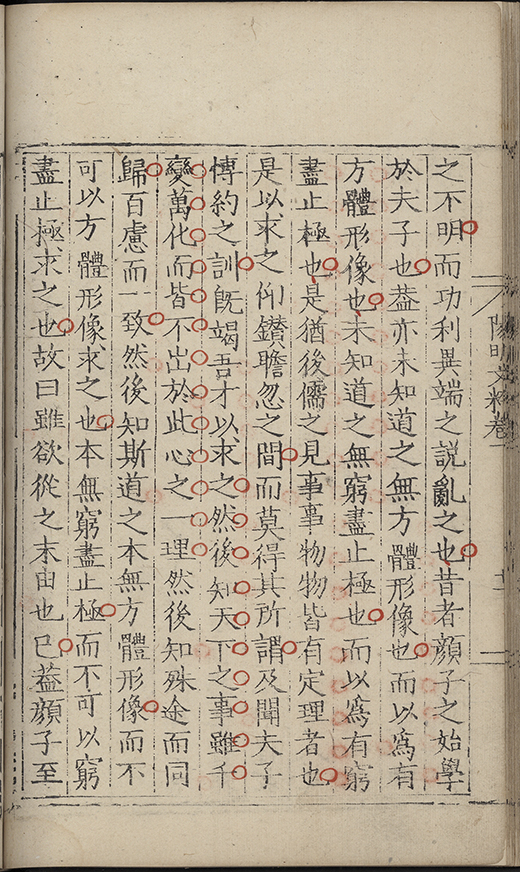 之不明而功利異端之說亂之也昔者顔子之始學
於夫子也葢亦未知道之無方體形像也而以爲有
方體形像也未知道之無窮盡止極也而以爲有窮
盡止極也是猶後儒之見事事物物皆有定理者也
是以求之仰鑚瞻忽之間而莫得其所謂及聞夫子
博約之訓旣竭吾才以求之然後知天下之事雖千
變萬化而皆不出於此心之一理然後知殊途而同
歸百慮而一致然後知斯道之本無方體形像而不
可以方體形像求之也本無窮盡止極而不可以窮
盡止極求之也故曰雖欲從之末由也已葢顔子至
陽明文粹卷一
十一